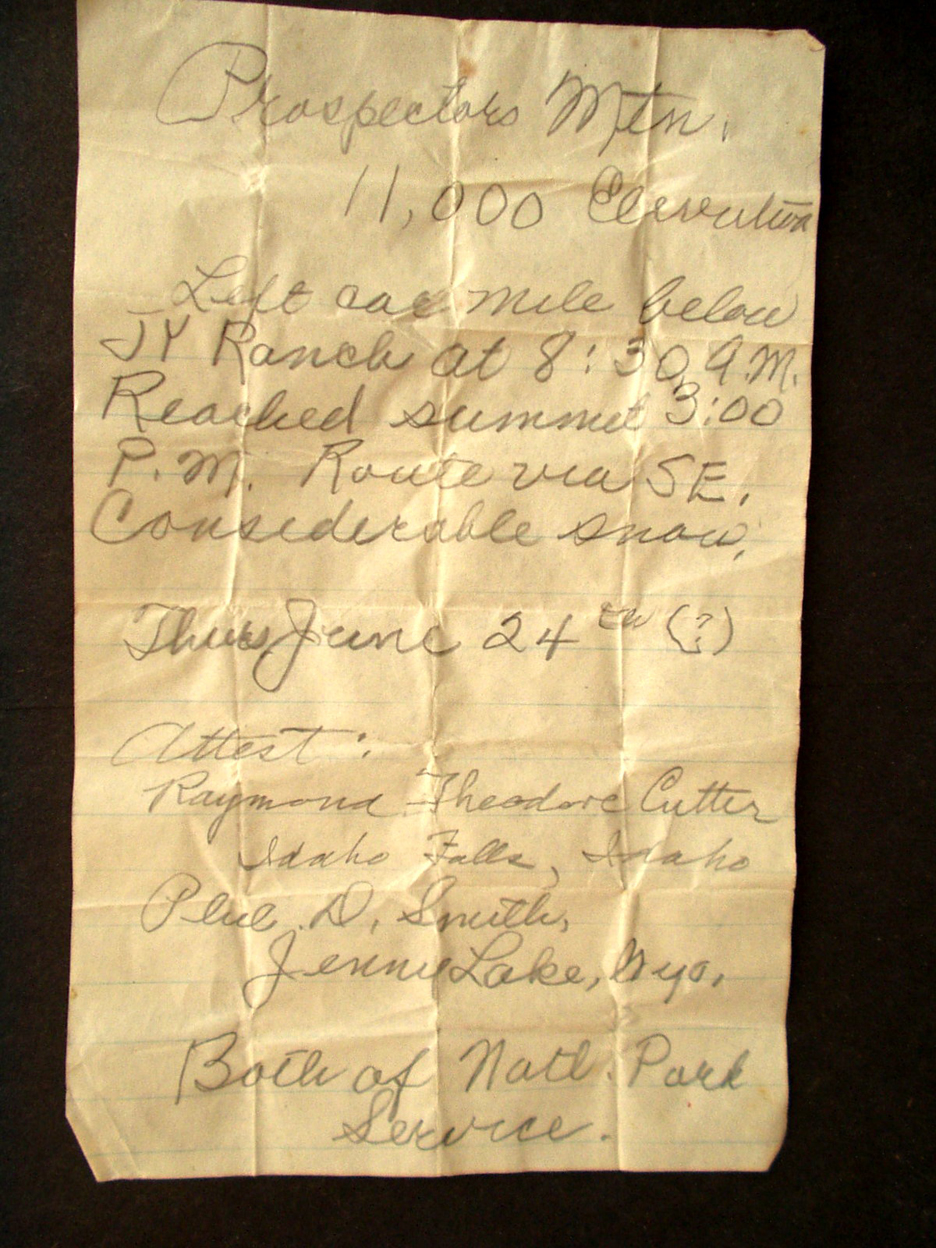 Prospectors Mtn.
11,000 Elevation
Left car mile below
JY Ranch at 8:30 A.M.
Reached summit 3:00
P.M. Route via SE.
Considerable snow.
Thurs June 24th (?)
Attest:
Raymond Theodore Cutter
Idaho Falls, Idaho
Phil D. Smith,
Jenny Lake, Wyo.
Both of Natl. Park
Service.